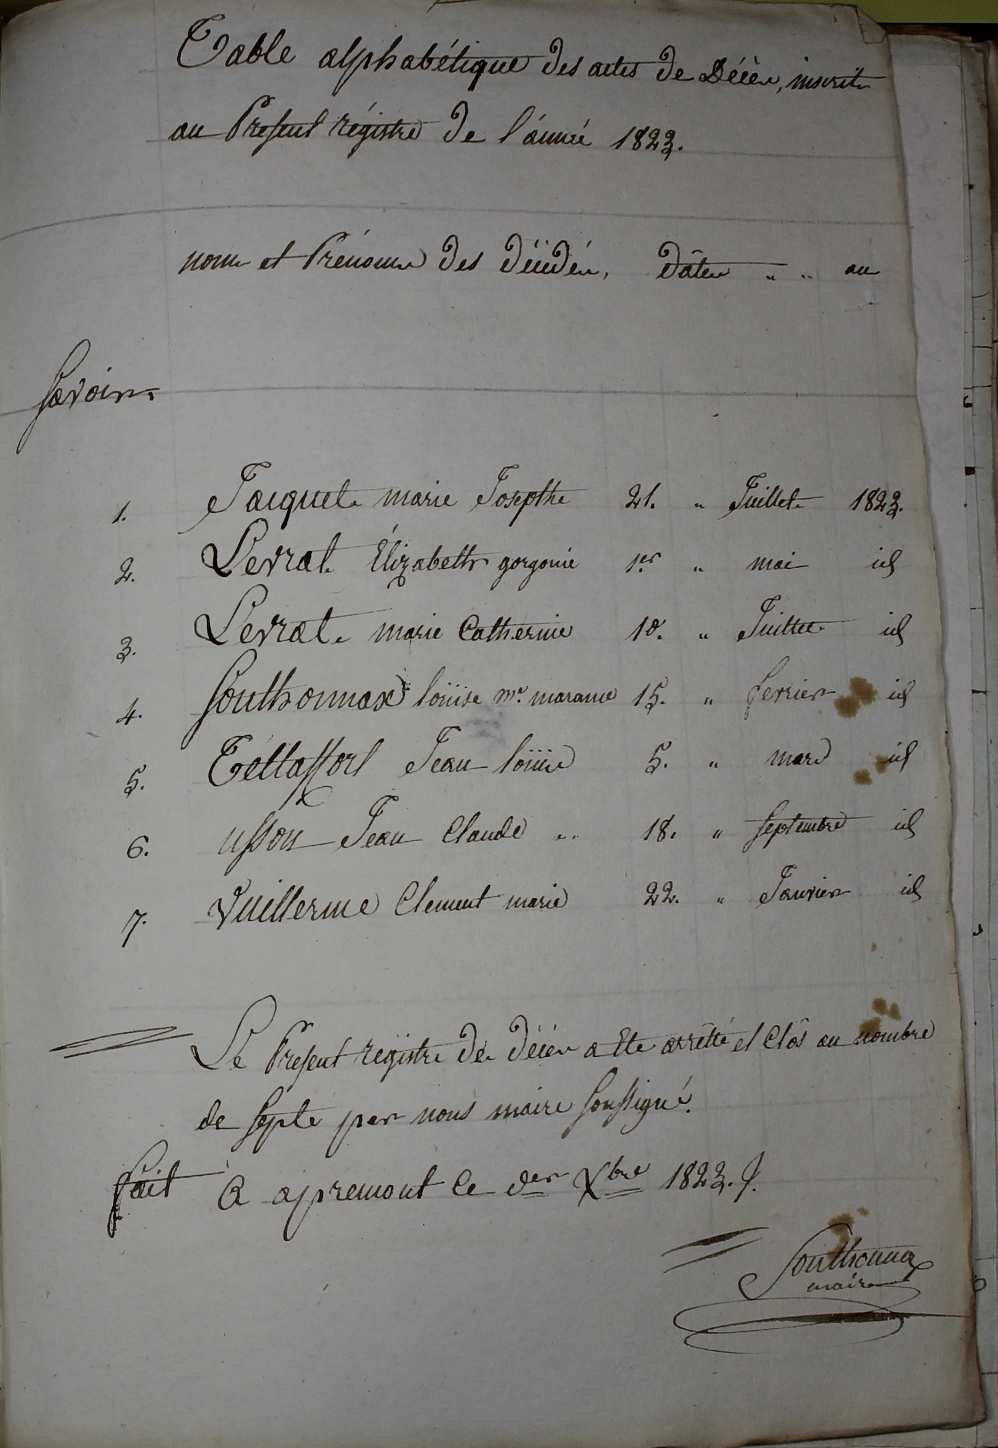 Table alphabétique des actes de Décès, inscrits
au Présent régistre de l'année 1823.
nom et Prénoms des décédés, dâtes " " au
Savoir
1. Jacquet marie Josepthe 21. " Juillet 1823.
2. Levrat Élizabeth gorgonie 1er " mai id
3. Levrat marie Catherine 10. " Juillet id
4. Southonnax loüise me. 15. " fevrier id
5. Jean loüis 5. " mars id
6. usson Jean Claude " 18. " Septembre id
7. Vuillerme Clement marie 22. " Janvier id
Le Présent régistre de décès a Eté arrêtté et Clôs au nombre
de Septe par nous maire Soussigné.
fait à apremont ce der Xbre 1823.
Southonnax
maire